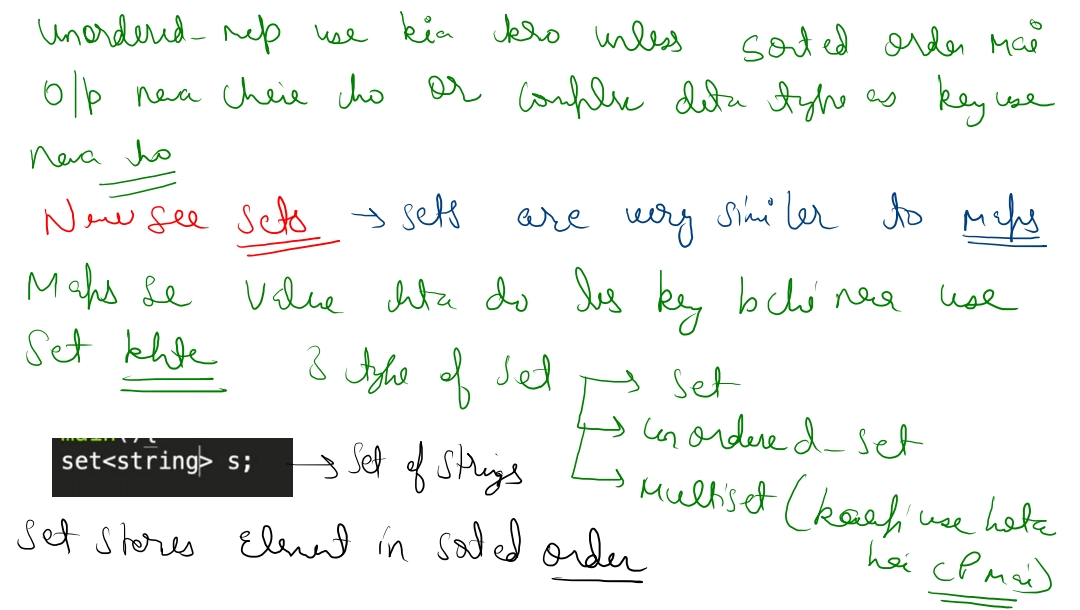 unordered_mep use kia kro unless sorted order mai
O/p nena cheie ho or complex data type as key use
nena ho
Now see sets → sets are very similer to maps
Maps se value hta do bs key bchi nena use
Set khte
3 type of set → Set
→ unordered_set
→ Multiset (kaafi use hota
hai CP mai)
main(){
set<string> s; → Set of strings
Set stores element in sorted order